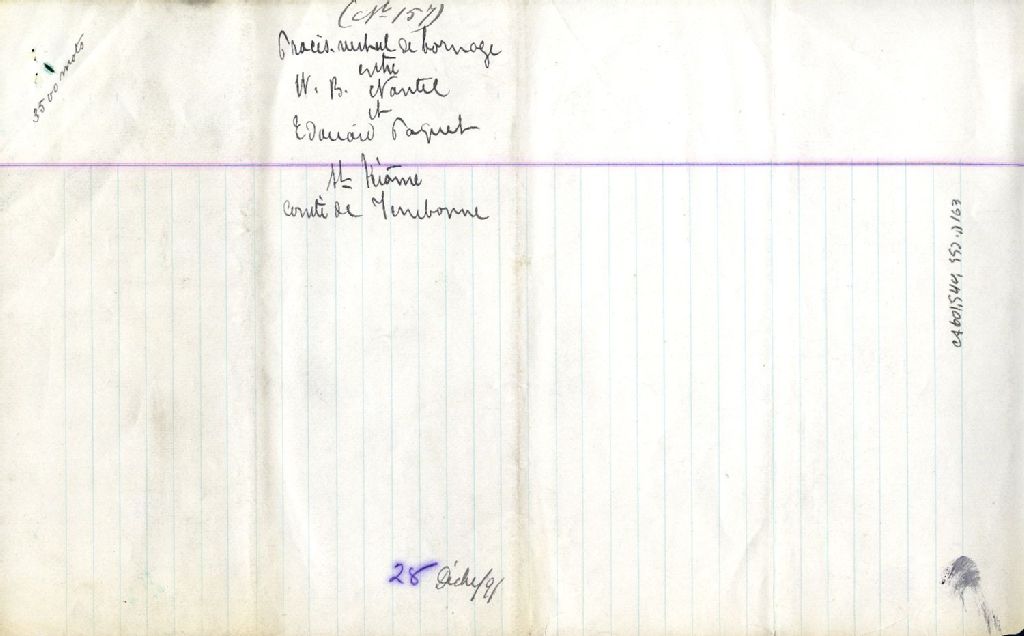 (No 157)
Procès-verbal de bornage
entre
W. B. Nantel
et
Edouard Paquet
St Jérôme
Comté de Terrebonne
3500 mots
28